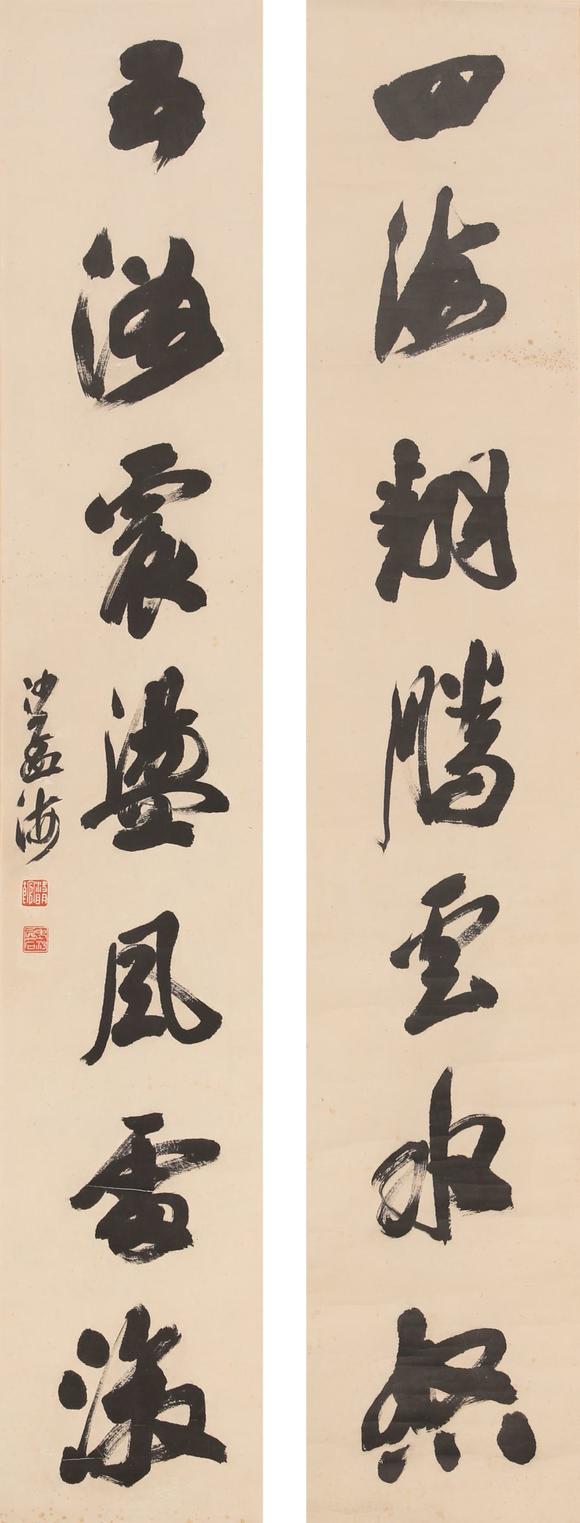 四海翻騰雲水怒
五洲震盪風雷激
沙孟海